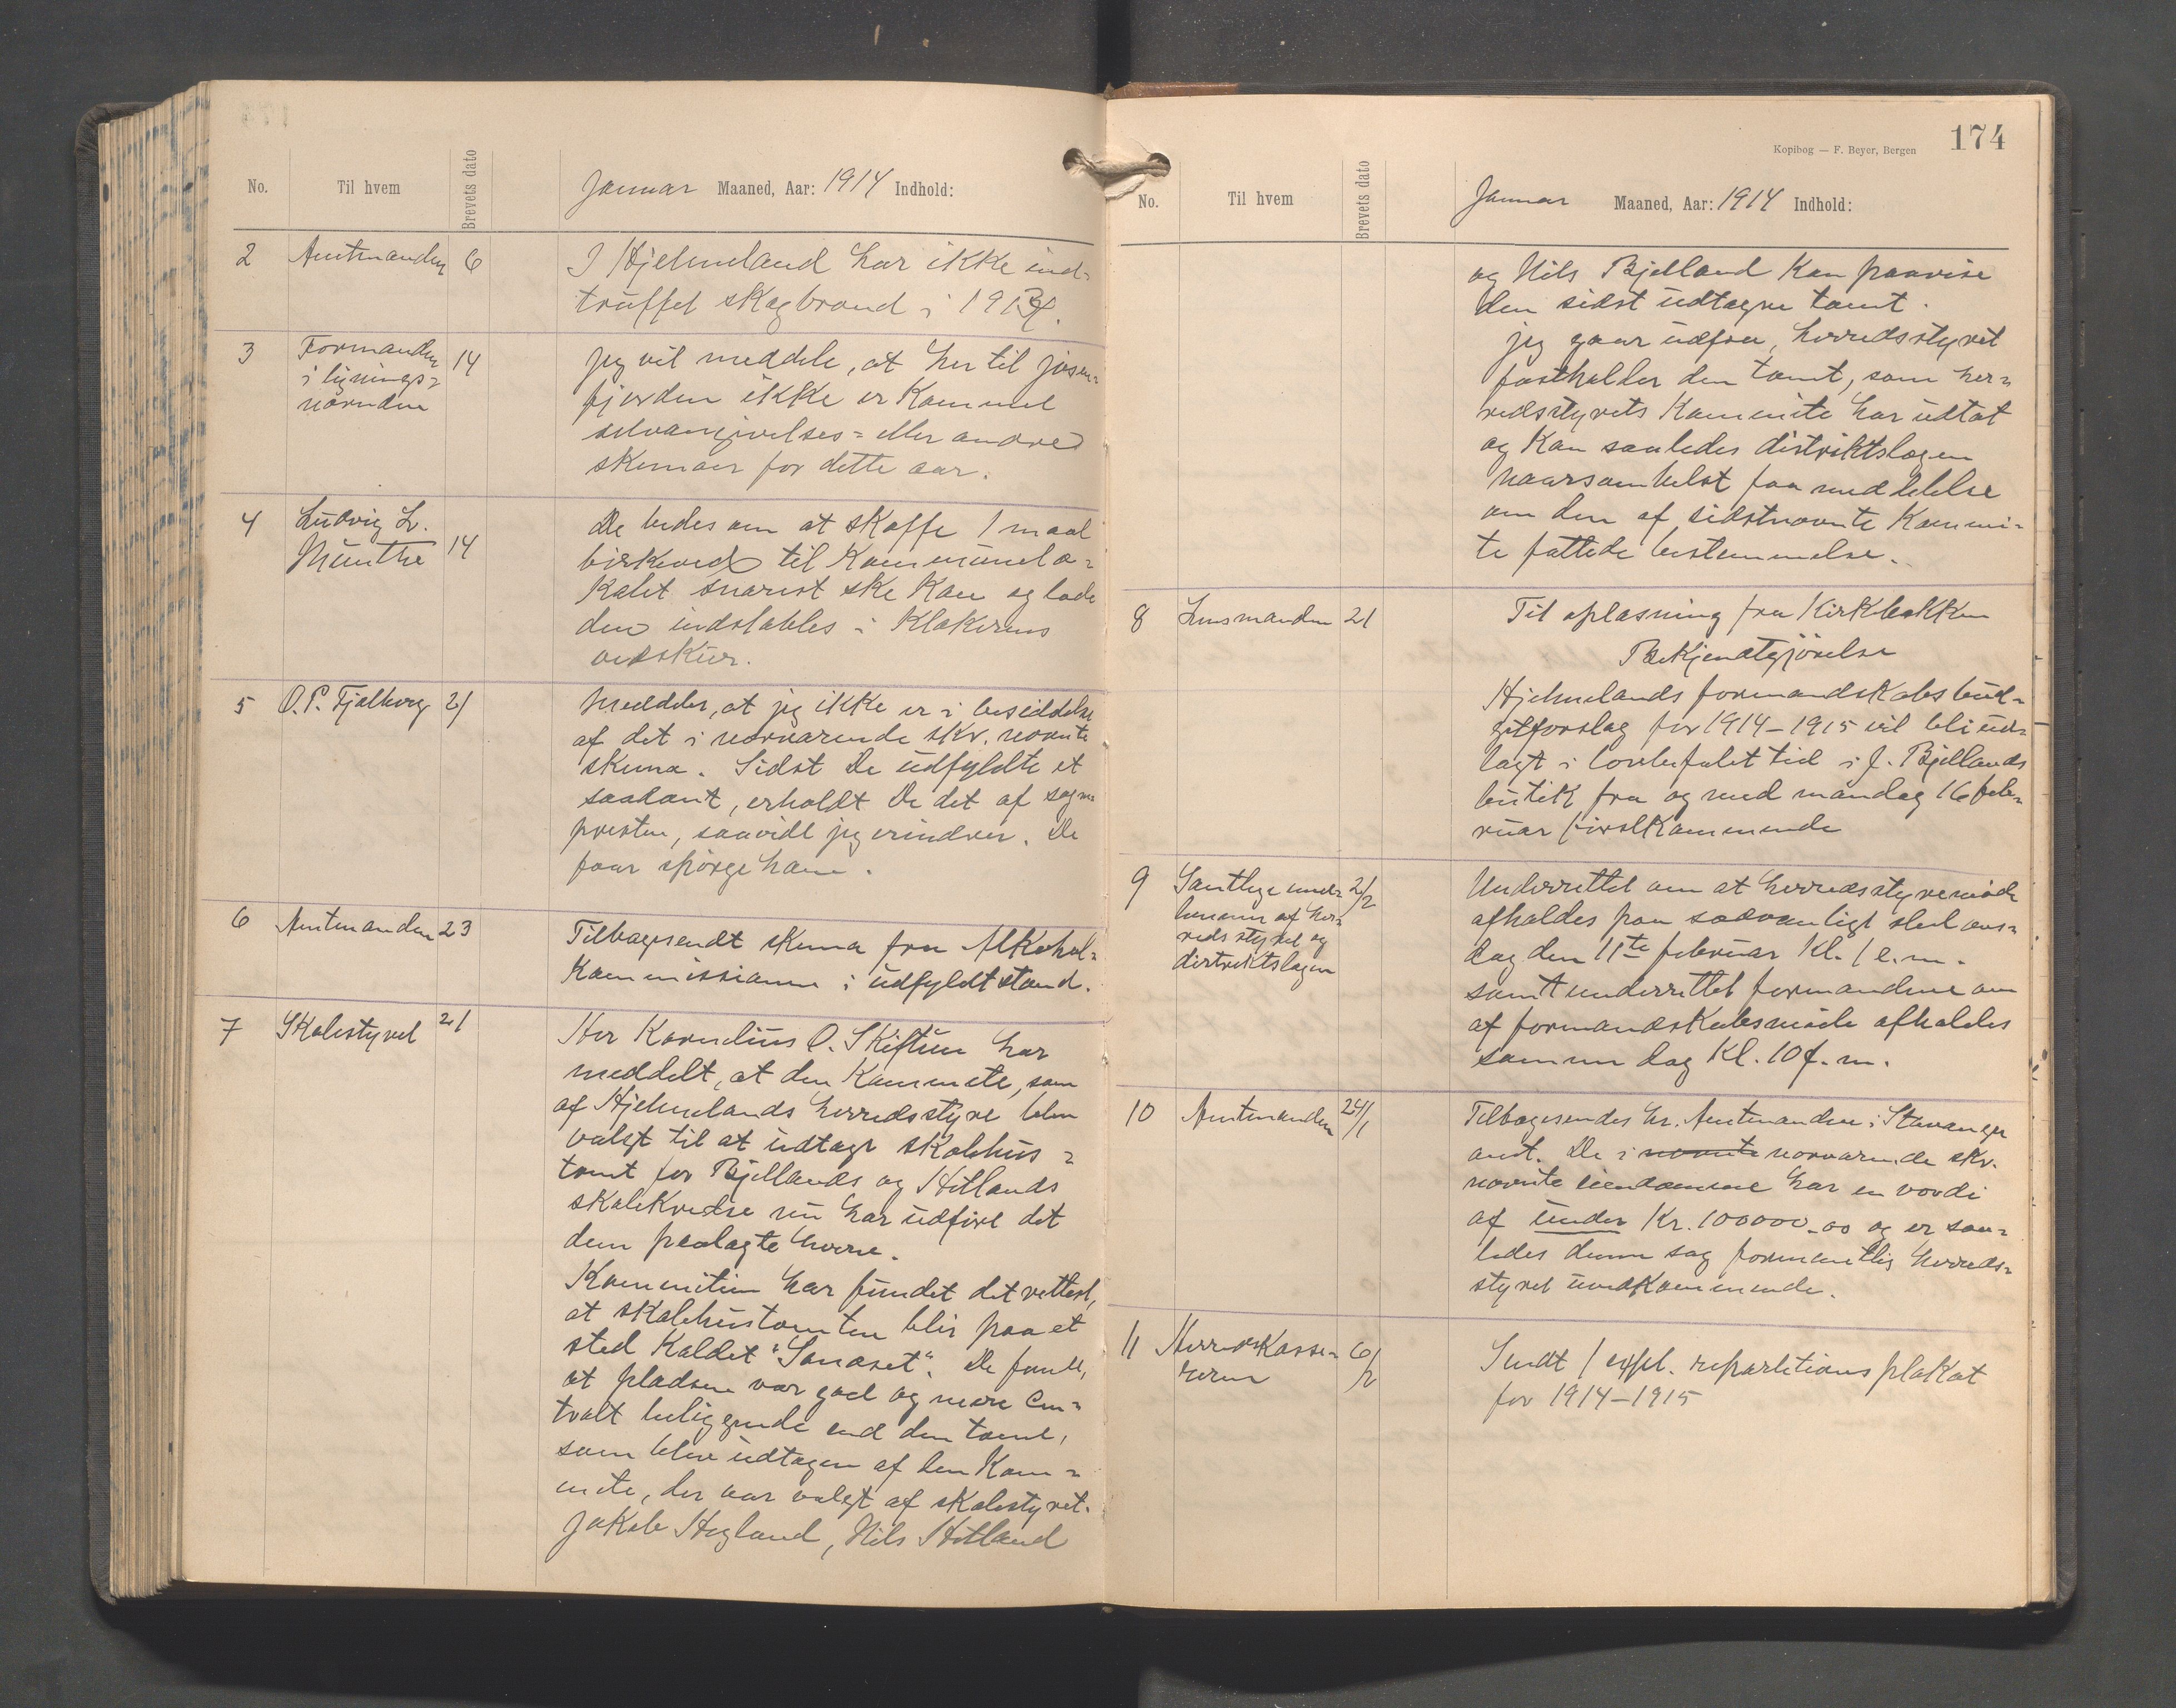 No. Til hvem Brevets dato Januar Maaned, Aar: 1914 Indhold:
2 Amtmanden 6 I Hjelmeland har ikke ind-
truffet skogbrand i 1913.
3 Formanden 14 Jeg vil meddele, at her til Jøsen-
i lignings-
fjorden ikke er kommet
nævnden
selvangivelses- eller andre
skemaer for dette aar.
4 Ludvig L. De bedes om at skaffe 1 maal
Munthe 14
birkeved til kommunelo-
kalet snarest ske kan og lade
den indstables i klokerens
vedskur.
5 O. P. Fjelberg 21 Meddeler, at jeg ikke er i besiddelse
af det i nærværende skr. nævnte
skema. Sidst De udfyldte et
saadant, erholdt De det af sogne
presten, saavidt jeg erindrer. De
faar spørge ham.
6 Amtmanden 23 Tilbagesendt skema fra Alkohol-
kommissionen i udfyldt stand.
7 Skolestyret 21 Her Kornelius O. Skiftun har
meddelt, at den komite, som
af Hjelmelands herredsstyre blev
valgt til at udtage skolehus-
tomt for Bjellands og Hetlands
skolekredse nu har udført det
dem paalagte hverv.
Kommitéen har fundet det rettest,
at skolehustomten blir paa et
sted kaldet "
". De fandt,
at pladsen var god og mere cen-
tralt beliggende end den tomt,
som blev udtagen af den kom-
mite, der var valgt af skolestyret.
Jakob Hegland, Nils Hetland
174
Kopibog — F. Beyer, Bergen
No. Til hvem Brevets dato Januar Maaned, Aar: 1914 Indhold:
og Nils Bjelland kan paavise
den sidst udtagne tomt.
Jeg gaar udfra, herredsstyret
fastholder den tomt, som her-
redsstyrets kommite har udtat
og kan saaledes distriktslægen
naarsomhelst faa meddelelse
om den af sidstnævnte kommi-
te fattede bestemmelse.
8 Lensmanden 21 Til oplæsning fra Kirkbakken
Bekjendtgjörelse
Hjelmelands formandskabs bud-
getforslag for 1914-1915 vil bli ud-
lagt i lovbefalet tid i J. Bjellands
butik fra og med mandag 16 feb-
ruar förstkommende
9 Samtlige med- 2/2 Underrettet om at herredsstyremöde
lemmer af her-
afholdes paa sædvanligt sted ons-
reds styret og
dag den 11te februar Kl. 1 e.m.
distriktslægen
samt underrettet formændene om
at formandskabsmöde afholdes
samme dag Kl. 10 f.m.
10 Amtmanden 24/1 Tilbagesendes hr. Amtmanden i Stavanger
amt. De i nævnte nærværende skr.
nævnte eiendomme har en værdi
af under Kr. 100000.00 og er saa-
ledes denne sag formentlig herreds-
styret uvedkommende.
11 Herredskasse- 6/2 Sendt 1 expl. repartitionsplakat
reren
for 1914-1915